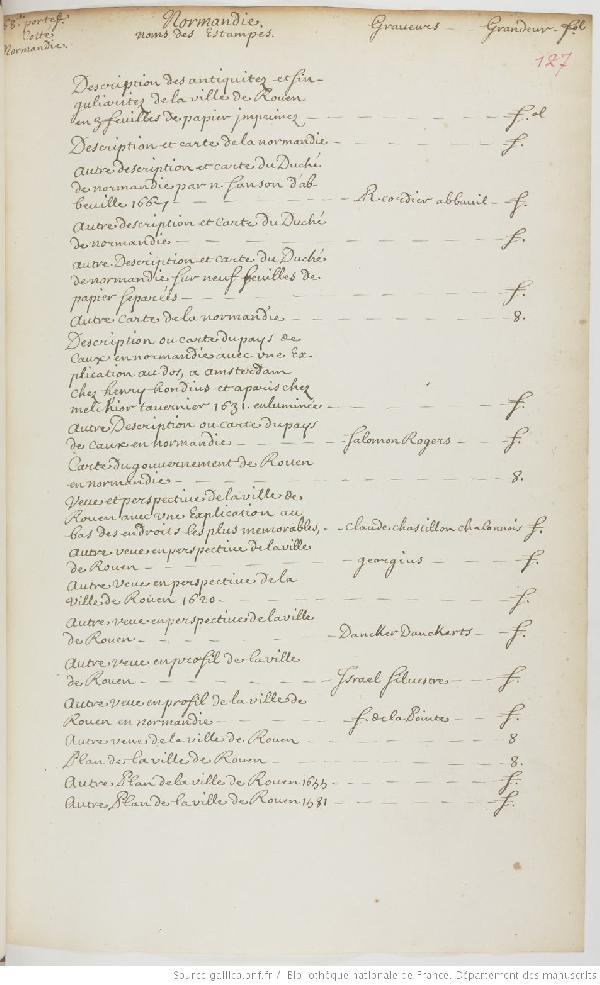 58.e portef.
Cotté
Normandie.
Normandie.
noms des Estampes.
Graveurs — Grandeur — fol
127
Description des antiquitez et sin-
guliaritez de la ville de Rouen
en 3 feuilles de papier jmprimez — f. ol
Description et carte de la normandie — f.
Autre description et carte du Duché
de normandie par n. sanson d'ab-
beuille 1667 — R. cordier abbeuil — f.
autre description et carte du Duché
de normandie — f.
autre Description et carte du Duché
de normandie sur neuf feuilles de
papier separéés — f.
Autre carte de la normandie — 8.
Description ou carte du pays de
Caux en normandie avec vne Ex-
plication au dos, a amsterdam
chez henry hondius et a paris chez
melchior tauernier 1631. enluminée — f.
Autre Description ou carte du pays
de caux en normandie — Salomon Rogers — f.
Carte du gouvernement de Rouen
en normandie — 8.
Veue et perspective de la ville de
Rouen avec vne Explication au
bas des endroits les plus memorables, — claude chastillon chalonnois f.
Autre veue en perspective de la ville
de Rouen — georgius — f.
Autre veue en perspective de la
ville de Rouen 1620 — f.
Autre veue en perspective de la ville
de Rouen — Dancker Danckerts — f.
Autre veue en profil de la ville
de Rouen — Israel Silvestre — f.
Autre veue en profil de la ville de
Rouen en normandie — f. de la Pointe — f.
Autre veue de la ville de Rouen — 8
Plan de la ville de Rouen — 8.
Autre Plan de la ville de Rouen 1655 — f.
Autre Plan de la ville de Rouen 1581 — f.
Source gallica.bnf.fr / Bibliothèque nationale de France. Département des manuscrits